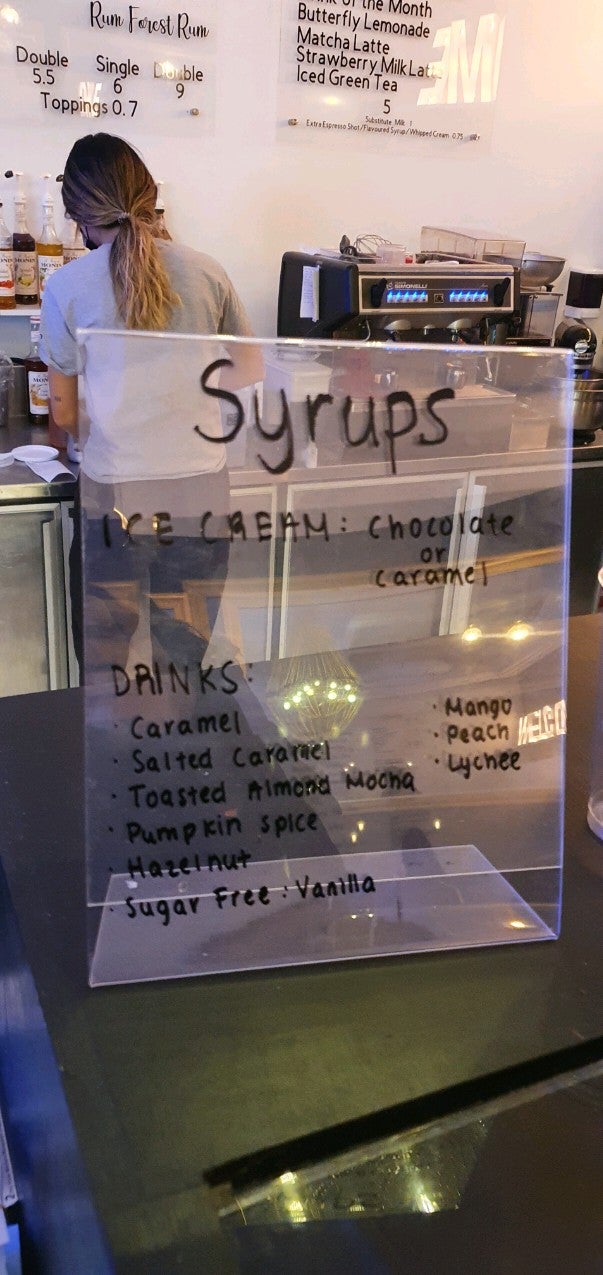 Rum Forest Rum
Double
5.5
Single
6
Double
9
Toppings 0.7
of the Month
Butterfly Lemonade
Matcha Latte
Strawberry Milk Latte
Iced Green Tea
5
Substitute Milk 1
Extra Espresso Shot/Flavoured Syrup/Whipped Cream 0.75
SIMONELLI
Syrups
ICE CREAM: Chocolate
or
caramel
DRINKS:
· Caramel
· Salted Caramel
· Toasted Almond Mocha
· Pumpkin spice
· Hazelnut
· Sugar Free: Vanilla
· Mango
· Peach
· Lychee